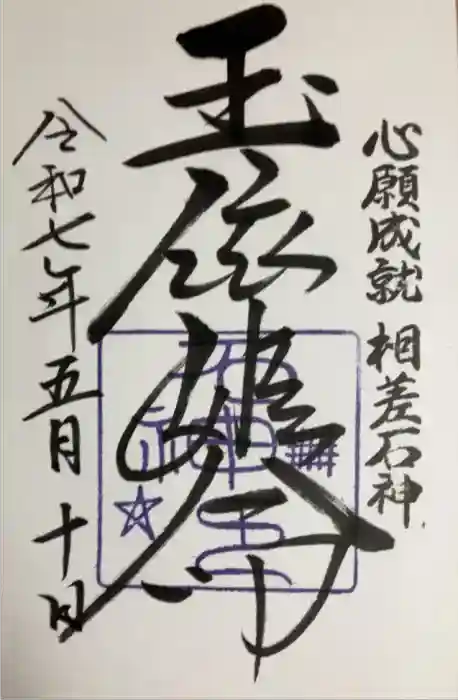 心願成就 相差石神
玉依姫命
令和七年五月十日